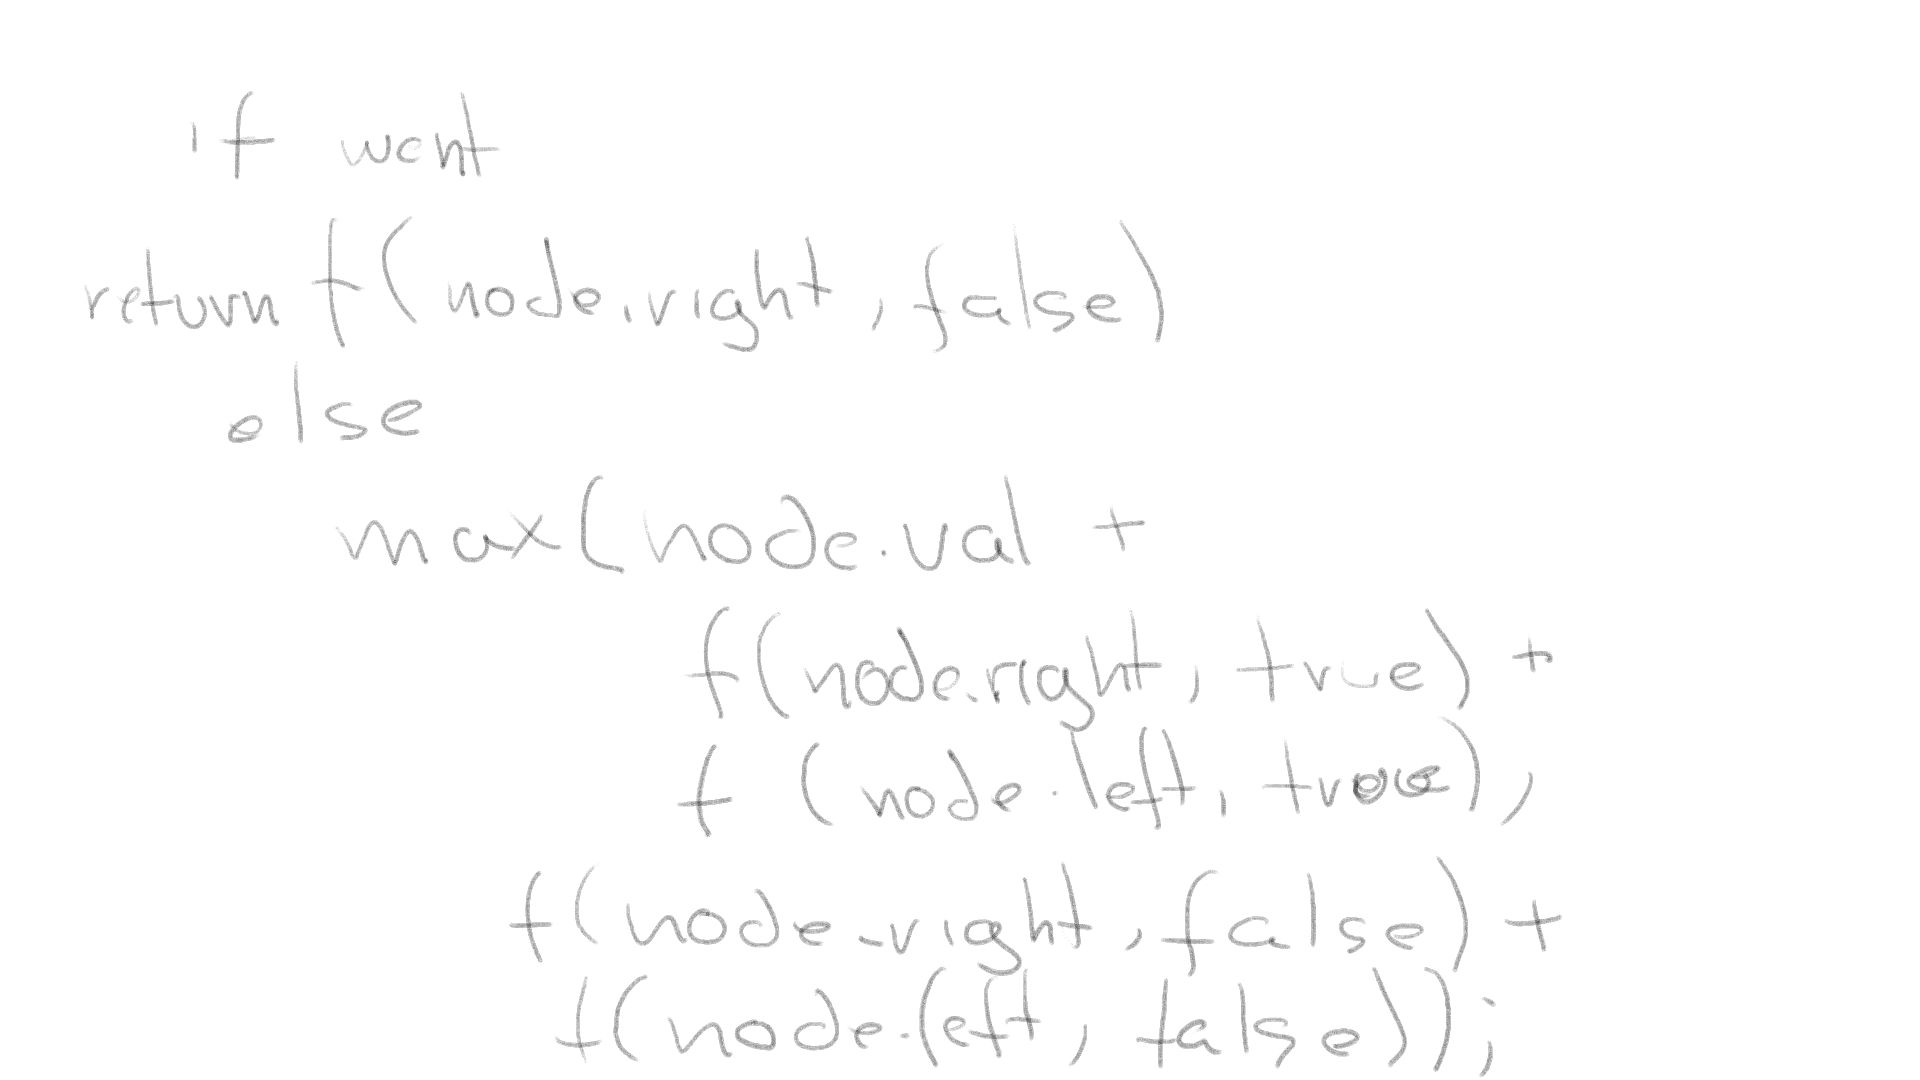 if went
return f(node.right, false)
else
max(node.val +
f(node.right, true) +
f (node.left, true),
f(node.right, false) +
f(node.left, false));